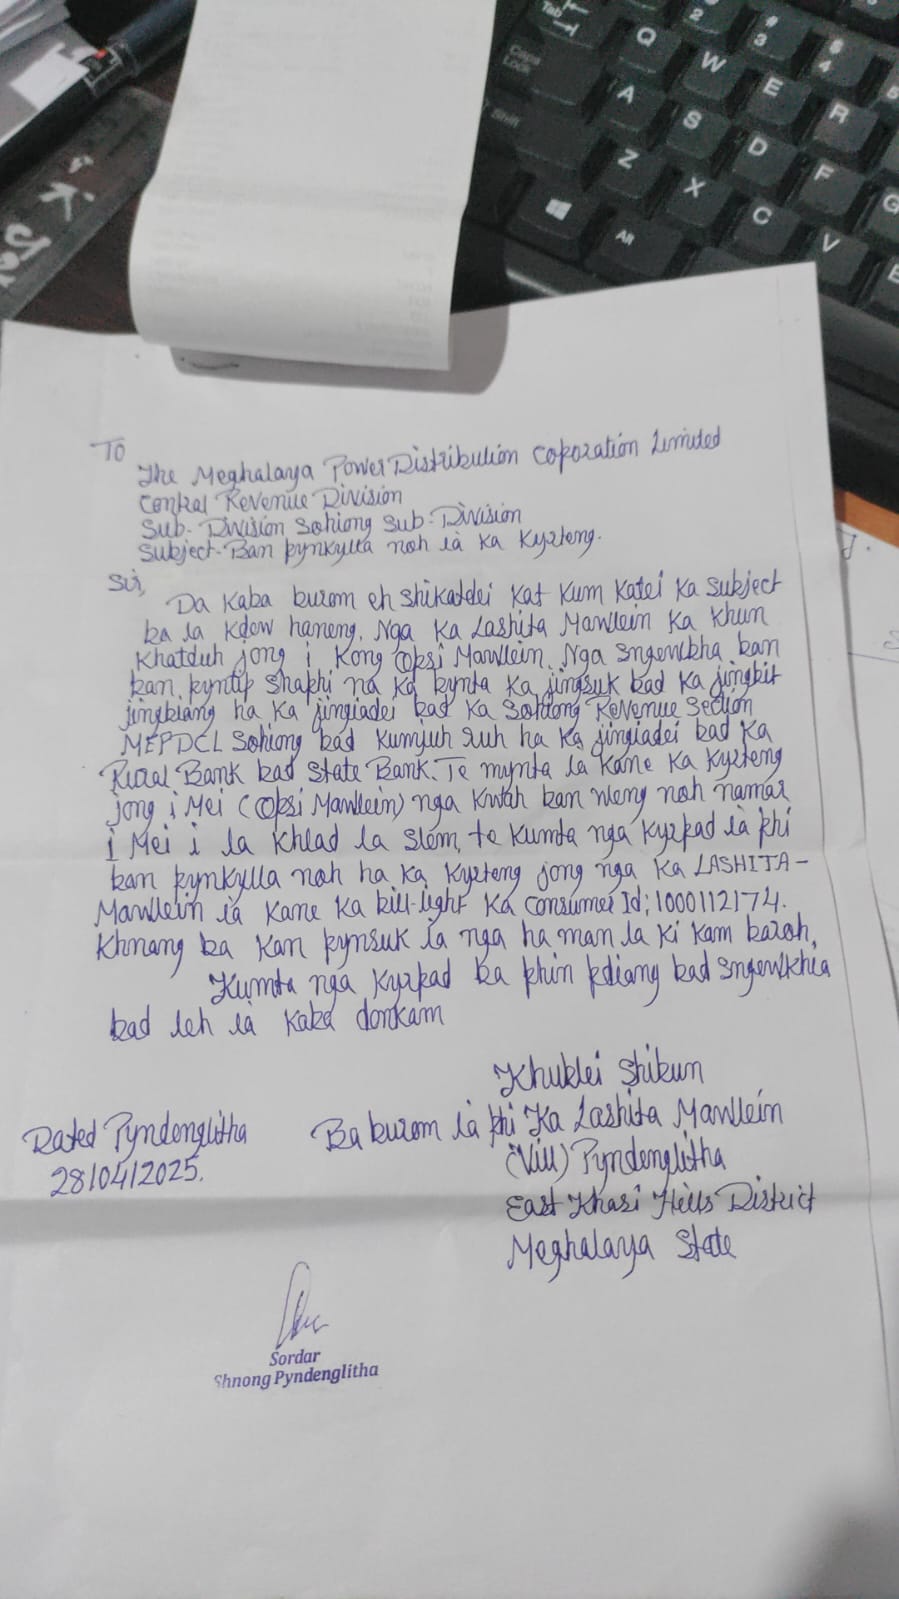 To
The Meghalaya Power Distribution Coporation Limited
Central Revenue Division
Sub-Division Sohiong Sub-Division
Subject-Ban pynkylla noh ïa ka Kyrteng.
Sir,
Da kaba burom eh shikatdei kat kum katei ka subject
ba la kdew haneng. Nga ka Lashita Mawlein ka khun
khatduh jong i Kong Oksi Mawlein. Nga sngewbha ban
ban pyntip shaphi na ka bynta ka jingsuk bad ka jingbit
jingbiang ha ka jingiadei bad ka Sohiong Revenue Section
MEPDCL Sohiong bad kumjuh ruh ha ka jingiadei bad ka
Rural Bank bad State Bank. Te mynta ïa kane ka kyrteng
jong i Mei (Oksi Mawlein) nga kwah ban weng noh namar
i Mei i la khlad la slem, te kumta nga kyrpad ïa phi
ban pynkylla noh ha ka kyrteng jong nga ka LASHITA-
Mawlein ïa kane ka bill-light ka Consumer Id; 10001121174.
Khnang ba kan pynsuk ïa nga ha man la ki kam baroh.
Kumta nga kyrpad ba phin pdiang bad sngewkhia
bad leh ïa kaba donkam
Khublei Shibun
Ba burom ïa phi Ka Lashita Mawlein
(Vill) Pyndenglitha
East Khasi Hills District
Meghalaya State
Dated Pyndenglitha
28/04/2025.
Sordar
Shnong Pyndenglitha
Tab
Caps Lock
Shift
Q W E R
A S D F G
Z X C V
Alt
2 3 4